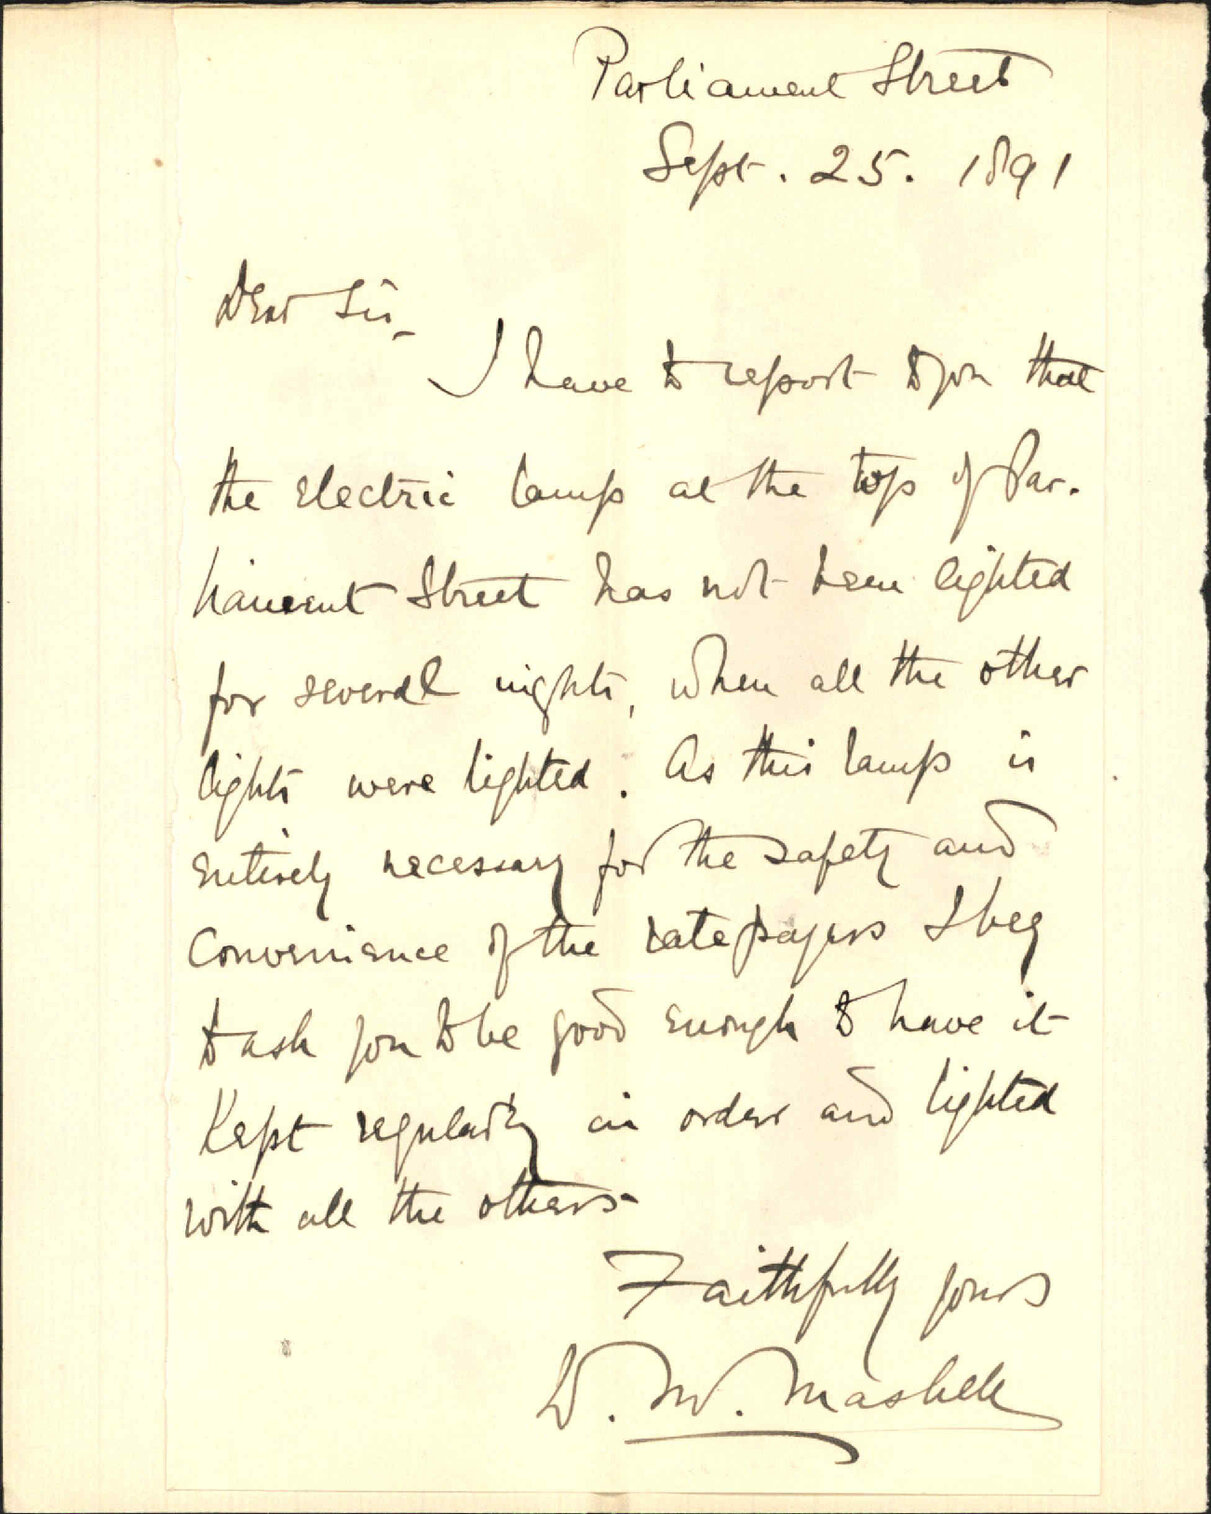 Parliament Street
Sept. 25. 1891
Dear Sir,
I have to report to you that
the electric lamp at the top of Par-
liament Street has not been lighted
for several nights, when all the other
lights were lighted. As this lamp is
entirely necessary for the safety and
convenience of the ratepayers I beg
to ask you to be good enough to have it
kept regularly in order and lighted
with all the others
Faithfully yours
W. M. Maskell